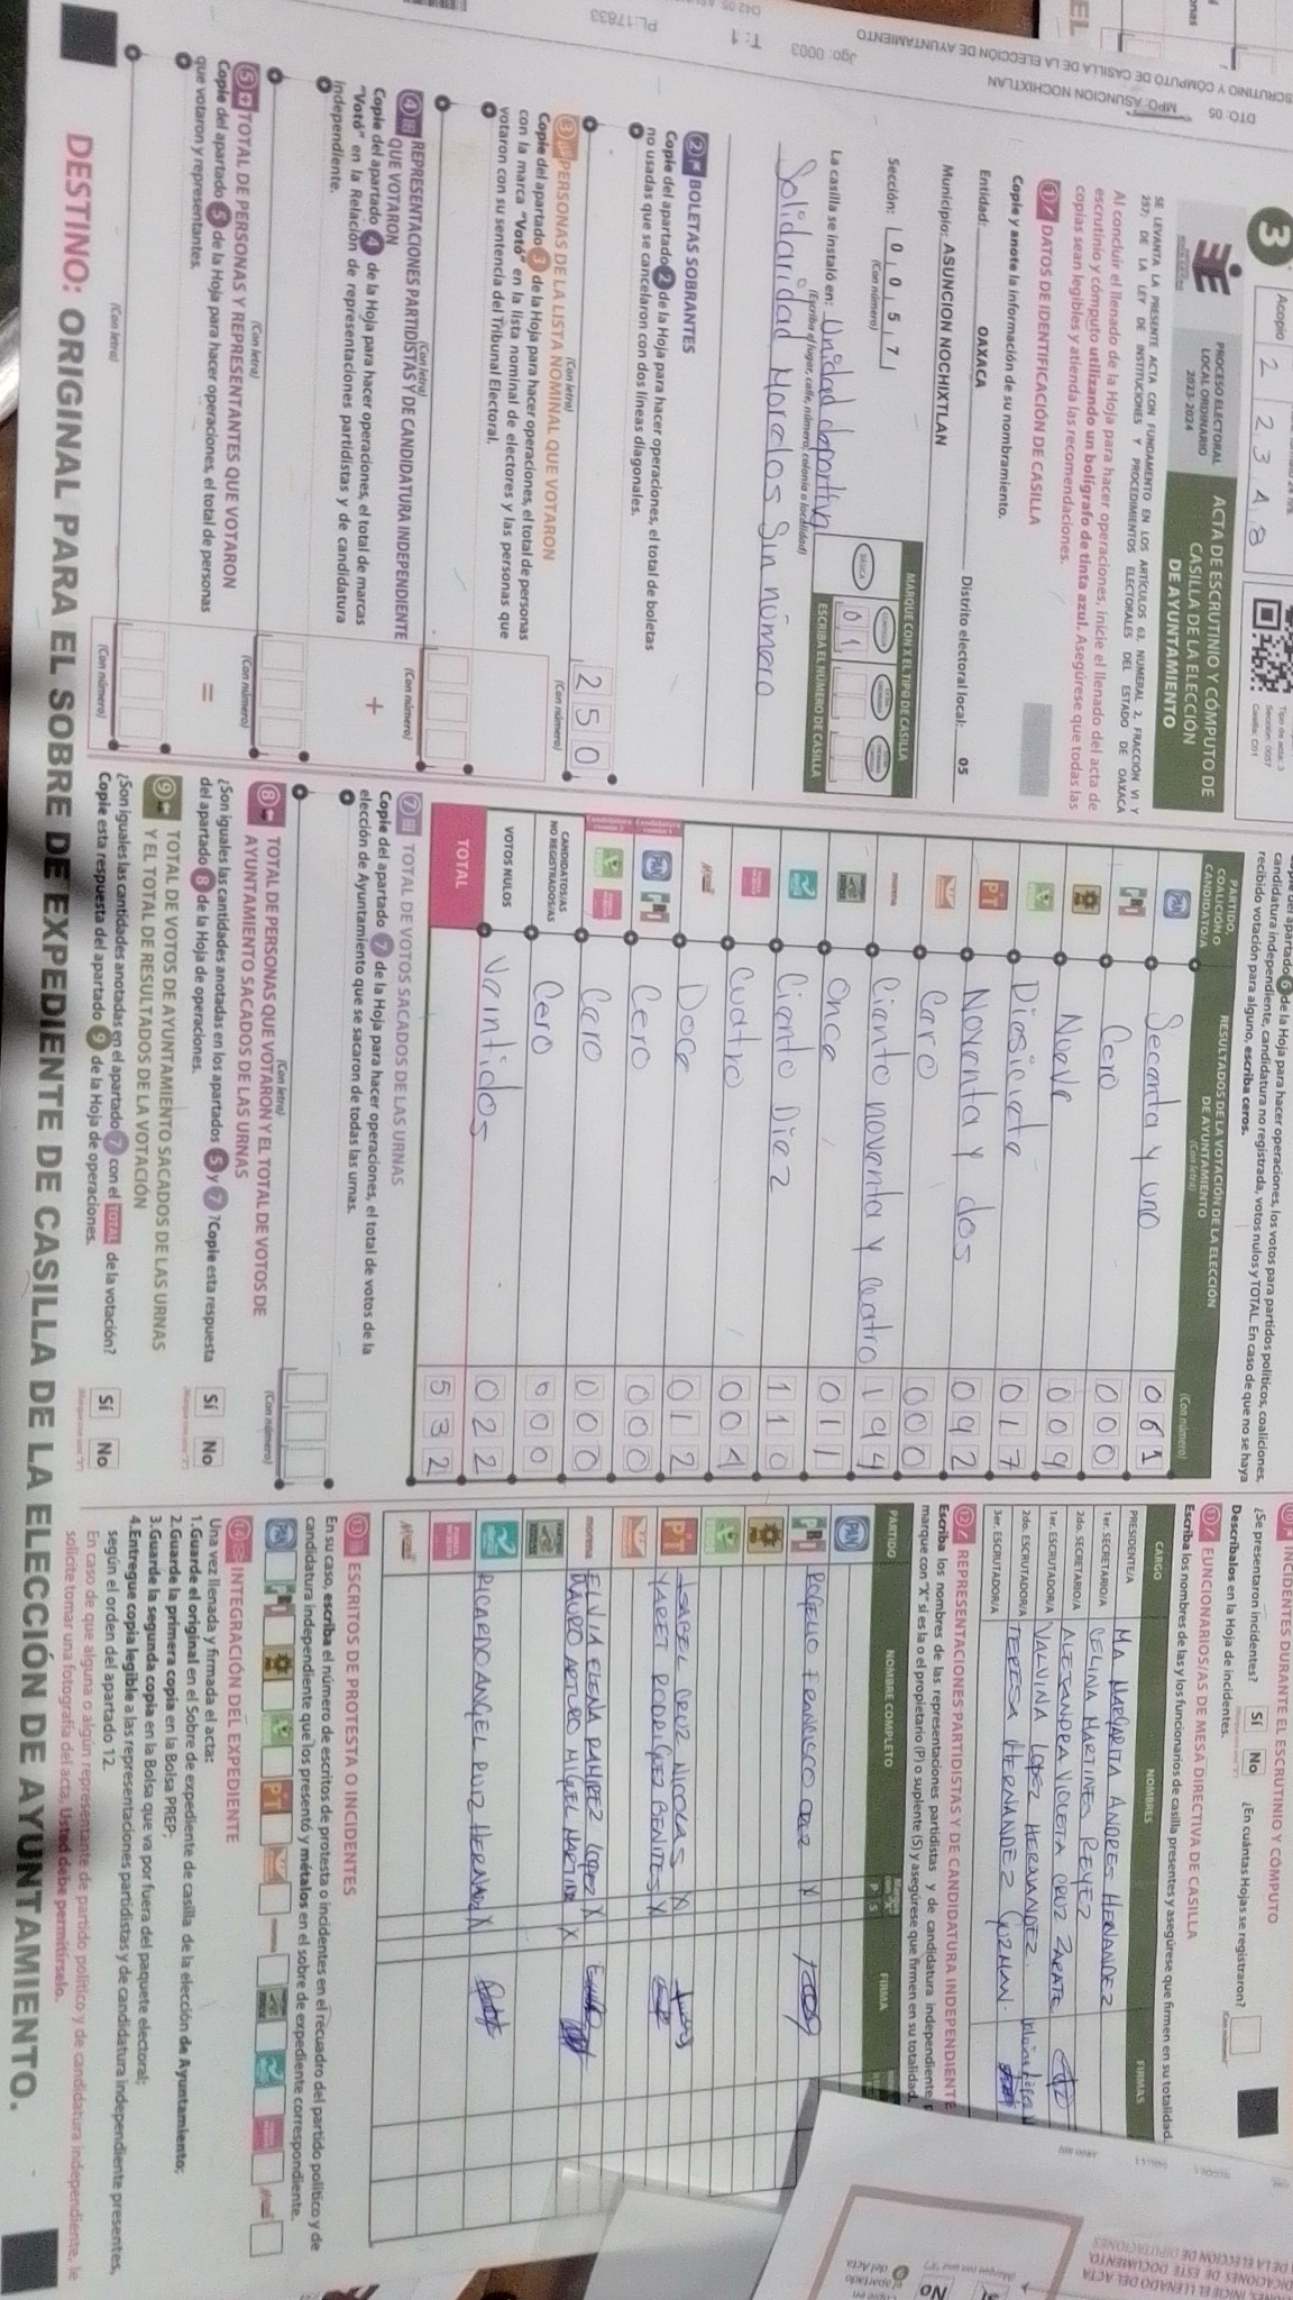 3
Acopio
2 2 3 A 8
Tipo de acta: 3
Sección: 0057
Casilla: C01
PROCESO ELECTORAL
LOCAL ORDINARIO
2023-2024
ACTA DE ESCRUTINIO Y CÓMPUTO DE
CASILLA DE LA ELECCIÓN
DE AYUNTAMIENTO
SE LEVANTA LA PRESENTE ACTA CON FUNDAMENTO EN LOS ARTÍCULOS 63, NUMERAL 2, FRACCIÓN VI Y
257; DE LA LEY DE INSTITUCIONES Y PROCEDIMIENTOS ELECTORALES DEL ESTADO DE OAXACA
Al concluir el llenado de la Hoja para hacer operaciones, inicie el llenado del acta de
escrutinio y cómputo utilizando un bolígrafo de tinta azul. Asegúrese que todas las
copias sean legibles y atienda las recomendaciones.
1 DATOS DE IDENTIFICACIÓN DE CASILLA
Copie y anote la información de su nombramiento.
Entidad: OAXACA Distrito electoral local: 05
Municipio: ASUNCION NOCHIXTLAN
Sección: 0 0 5 7
(Con número)
MARQUE CON X EL TIPO DE CASILLA
BÁSICA
0 1
ESCRIBA EL NÚMERO DE CASILLA
La casilla se instaló en: Unidad deportiva
(Escriba el lugar, calle, número, colonia o localidad)
Solidaridad Morelos Sin número
2 BOLETAS SOBRANTES
Copie del apartado 2 de la Hoja para hacer operaciones, el total de boletas
no usadas que se cancelaron con dos líneas diagonales.
2 5 0
(Con letra) (Con número)
3 PERSONAS DE LA LISTA NOMINAL QUE VOTARON
Copie del apartado 3 de la Hoja para hacer operaciones, el total de personas
con la marca "Votó" en la lista nominal de electores y las personas que
votaron con su sentencia del Tribunal Electoral.
(Con letra) (Con número)
4 REPRESENTACIONES PARTIDISTAS Y DE CANDIDATURA INDEPENDIENTE
QUE VOTARON
Copie del apartado 4 de la Hoja para hacer operaciones, el total de marcas
"Votó" en la Relación de representaciones partidistas y de candidatura
independiente.
+
(Con letra) (Con número)
5 TOTAL DE PERSONAS Y REPRESENTANTES QUE VOTARON
Copie del apartado 5 de la Hoja para hacer operaciones, el total de personas
que votaron y representantes.
=
(Con letra) (Con número)
candidatura independiente, candidatura no registrada, votos nulos y TOTAL. En caso de que no se haya
recibido votación para alguno, escriba ceros.
PARTIDO,
COALICIÓN O
CANDIDATO/A
RESULTADOS DE LA VOTACIÓN DE LA ELECCIÓN
DE AYUNTAMIENTO
(Con letra) (Con número)
PAN Secenta y uno 0 6 1
PRI Cero 0 0 0
Nueve 0 0 9
Diesiciete 0 1 7
PT Noventa y dos 0 9 2
Cero 0 0 0
morena Ciento noventa y Cuatro 1 9 4
Once 0 1 1
Ciento Diez 1 1 0
Cuatro 0 0 4
Doce 0 1 2
PAN PRI Cero 0 0 0
Cero 0 0 0
CANDIDATOS/AS
NO REGISTRADOS/AS Cero 0 0 0
VOTOS NULOS Veintidos 0 2 2
TOTAL 5 3 2
7 TOTAL DE VOTOS SACADOS DE LAS URNAS
Copie del apartado 7 de la Hoja para hacer operaciones, el total de votos de la
elección de Ayuntamiento que se sacaron de todas las urnas.
(Con letra) (Con número)
8 TOTAL DE PERSONAS QUE VOTARON Y EL TOTAL DE VOTOS DE
AYUNTAMIENTO SACADOS DE LAS URNAS
¿Son iguales las cantidades anotadas en los apartados 5 y 7 ? Copie esta respuesta
del apartado 8 de la Hoja de operaciones.
Sí No
9 TOTAL DE VOTOS DE AYUNTAMIENTO SACADOS DE LAS URNAS
Y EL TOTAL DE RESULTADOS DE LA VOTACIÓN
¿Son iguales las cantidades anotadas en el apartado 7 con el TOTAL de la votación?
Copie esta respuesta del apartado 9 de la Hoja de operaciones.
Sí No
INCIDENTES DURANTE EL ESCRUTINIO Y CÓMPUTO
¿Se presentaron incidentes? Sí No ¿En cuántas Hojas se registraron?
Descríbalos en la Hoja de incidentes.
11 FUNCIONARIOS/AS DE MESA DIRECTIVA DE CASILLA
Escriba los nombres de las y los funcionarios de casilla presentes y asegúrese que firmen en su totalidad.
CARGO NOMBRES FIRMAS
PRESIDENTE/A MA MARGARITA ANDRES HERNANDEZ
1er. SECRETARIO/A CELINA MARTINES REYEZ
2do. SECRETARIO/A ALEJANDRA VIOLETA CRUZ ZARATE
1er. ESCRUTADOR/A VALVINA LOPEZ HERNANDEZ
2do. ESCRUTADOR/A TERESA HERNANDEZ GUZMAN
3er. ESCRUTADOR/A
12 REPRESENTACIONES PARTIDISTAS Y DE CANDIDATURA INDEPENDIENTE
Escriba los nombres de las representaciones partidistas y de candidatura independiente
marque con "X" si es la o el propietario (P) o suplente (S) y asegúrese que firmen en su totalidad.
PARTIDO NOMBRE COMPLETO P S FIRMA
PAN
PRI ROGELIO FRANCISCO CRUZ X
PT ISABEL CRUZ NICOLAS X
YARET RODRIGUEZ BENITES X
morena ELVIA ELENA RAMIREZ LOPEZ X
MAURO ARTURO MIGUEL MARTINEZ X
RICARDO ANGEL RUIZ HERNAND X
13 ESCRITOS DE PROTESTA O INCIDENTES
En su caso, escriba el número de escritos de protesta o incidentes en el recuadro del partido político y de
candidatura independiente que los presentó y métalos en el sobre de expediente correspondiente.
14 INTEGRACIÓN DEL EXPEDIENTE
Una vez llenada y firmada el acta:
1.Guarde el original en el Sobre de expediente de casilla de la elección de Ayuntamiento;
2.Guarde la primera copia en la Bolsa PREP;
3.Guarde la segunda copia en la Bolsa que va por fuera del paquete electoral;
4.Entregue copia legible a las representaciones partidistas y de candidatura independiente presentes,
según el orden del apartado 12.
En caso de que alguna o algún representante de partido político y de candidatura independiente, le
solicite tomar una fotografía del acta, Usted debe permitírselo.
DESTINO: ORIGINAL PARA EL SOBRE DE EXPEDIENTE DE CASILLA DE LA ELECCIÓN DE AYUNTAMIENTO.
DTO: 05 MPO: ASUNCION NOCHIXTLAN
ESCRUTINIO Y CÓMPUTO DE CASILLA DE LA ELECCIÓN DE AYUNTAMIENTO
Jgo: 0003
T: 1
PL:17833